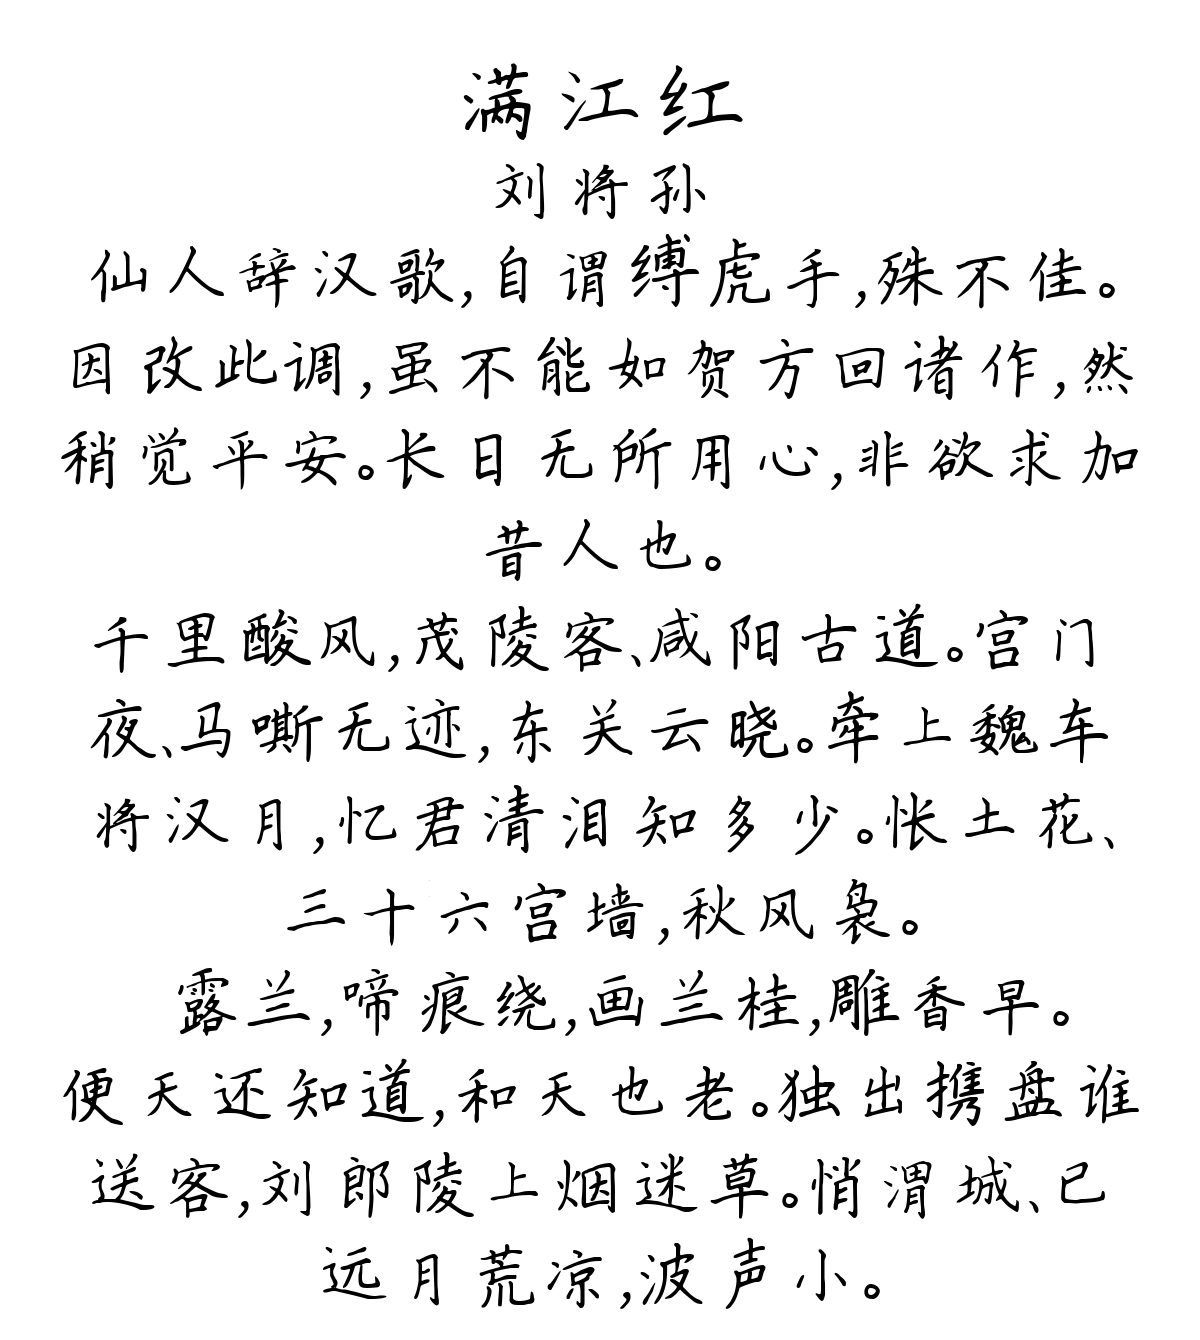 满江红
刘将孙
仙人辞汉歌,自谓缚虎手,殊不佳。
因改此调,虽不能如贺方回诸作,然
稍觉平安。长日无所用心,非欲求加
昔人也。
千里酸风,茂陵客、咸阳古道。宫门
夜、马嘶无迹,东关云晓。牵上魏车
将汉月,忆君清泪知多少。怅土花、
三十六宫墙,秋风袅。
露兰,啼痕绕,画兰桂,雕香早。
便天还知道,和天也老。独出携盘谁
送客,刘郎陵上烟迷草。悄渭城、已
远月荒凉,波声小。